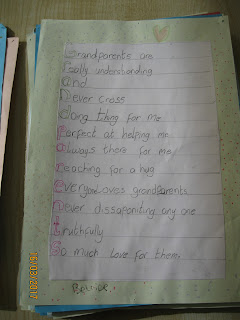 Grandparents are
Really understanding
And
Never cross
doing thing for me
Perfect at helping me
always there for me
reaching for a hug
everyone loves grandparents
never dissapointing any one
truthfully
So much love for them.
16/03/2017